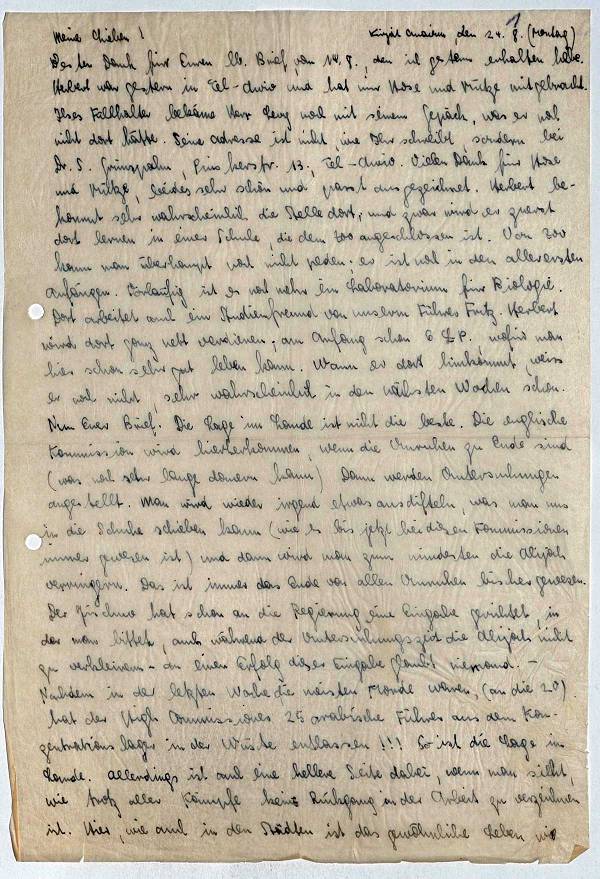 1
Meine Lieben! Kirjat Anavim, den 24. 8. (Montag)
Besten Dank für Euren lb. Brief vom 14. 8., den ich gestern erhalten habe.
Herbert war gestern in Tel-Aviv und hat mir Hose und Mütze mitgebracht.
Ilses Füllhalter bekäme Herr Levy noch mit seinem Gepäck, was er noch
nicht dort hätte. Seine Adresse ist nicht, wie Ihr schreibt, sondern bei
Dr. S. Grünspahn, Pinskerstr. 13, Tel-Aviv. Vielen Dank für Hose
und Mütze, beides sehr schön und passt ausgezeichnet. Herbert be-
kommt sehr wahrscheinlich die Stelle dort, und zwar wird er zuerst
dort lernen in einer Schule, die dem Zoo angeschlossen ist. Von Zoo
kann man überhaupt noch nicht reden; er ist noch in den allerersten
Anfängen. Vorläufig ist es noch mehr ein Laboratorium für Biologie.
Dort arbeitet auch ein Studienfreund von unserm Führer Fritz. Herbert
wird dort ganz nett verdienen; am Anfang schon 6 £P. wofür man
hier schon sehr gut leben kann. Wann er dort hinkommt, weiss
er noch nicht, sehr wahrscheinlich in den nächsten Wochen schon.
Nun Euer Brief. Die Lage im Lande ist nicht die beste. Die englische
Kommission wird hierherkommen, wenn die Unruhen zu Ende sind
(was noch sehr lange dauern kann) Dann werden Untersuchungen
angestellt. Man wird wieder irgend etwas ausdifteln, was man uns
in die Schuhe schieben kann (wie es bis jetzt bei diesen Kommissionen
immer gewesen ist) und dann wird man zum mindesten die Alijah
verringern. Das ist immer das Ende von allen Unruhen bisher gewesen.
Der Jischuw hat schon an die Regierung eine Eingabe gerichtet, in
der man bittet, auch während der Untersuchungszeit die Alijah nicht
zu verkleinern - an einen Erfolg dieser Eingabe glaubt niemand. -
Nachdem in der letzten Woche die meisten Morde waren, (an die 20)
hat der High Commissioner 25 arabische Führer aus dem Kon-
zentrationslager in der Wüste entlassen!!! So ist die Lage im
Lande. Allerdings ist auch eine hellere Seite dabei, wenn man sieht,
wie trotz aller Kämpfe kein Rückgang in der Arbeit zu verzeichnen
ist. Hier, wie auch in den Städten ist das gewöhnliche Leben wie